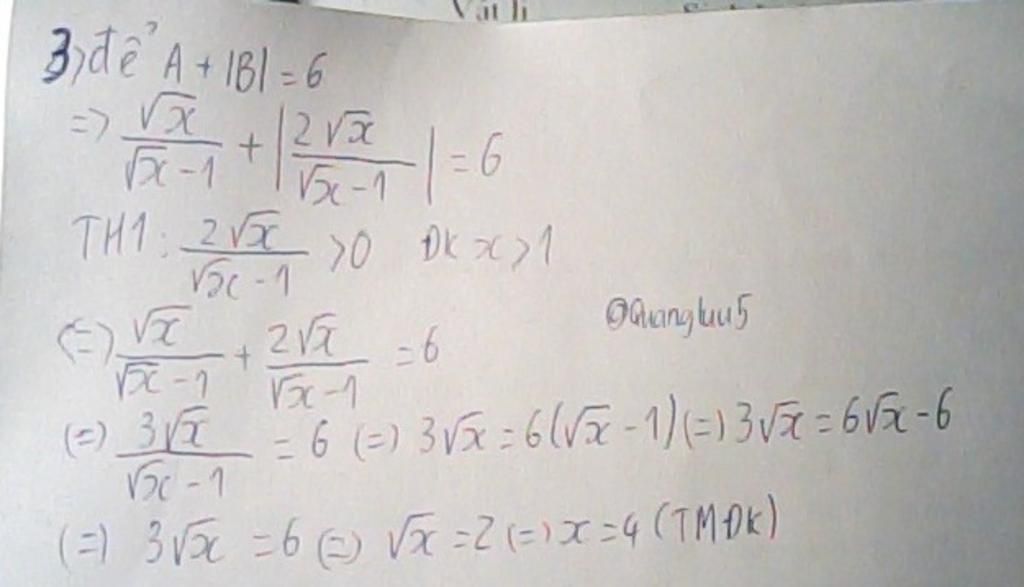 3) để A + |B| = 6
=> √x/(√x - 1) + |2√x/(√x - 1)| = 6
TH1: 2√x/(√x - 1) > 0 ĐK x > 1
(=) √x/(√x - 1) + 2√x/(√x - 1) = 6
@Quangluu5
(=) 3√x/(√x - 1) = 6 (=) 3√x = 6(√x - 1) (=) 3√x = 6√x - 6
(=) 3√x = 6 (=) √x = 2 (=) x = 4 (TMĐK)